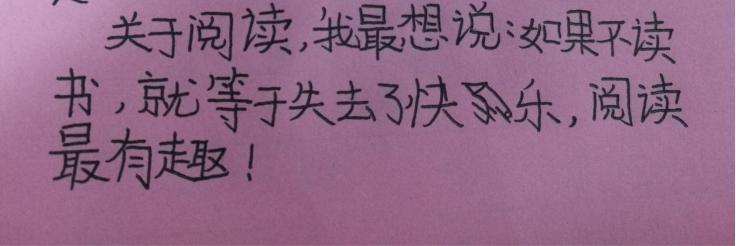 关于阅读,我最想说:如果不读
书,就等于失去了快乐,阅读
最有趣!